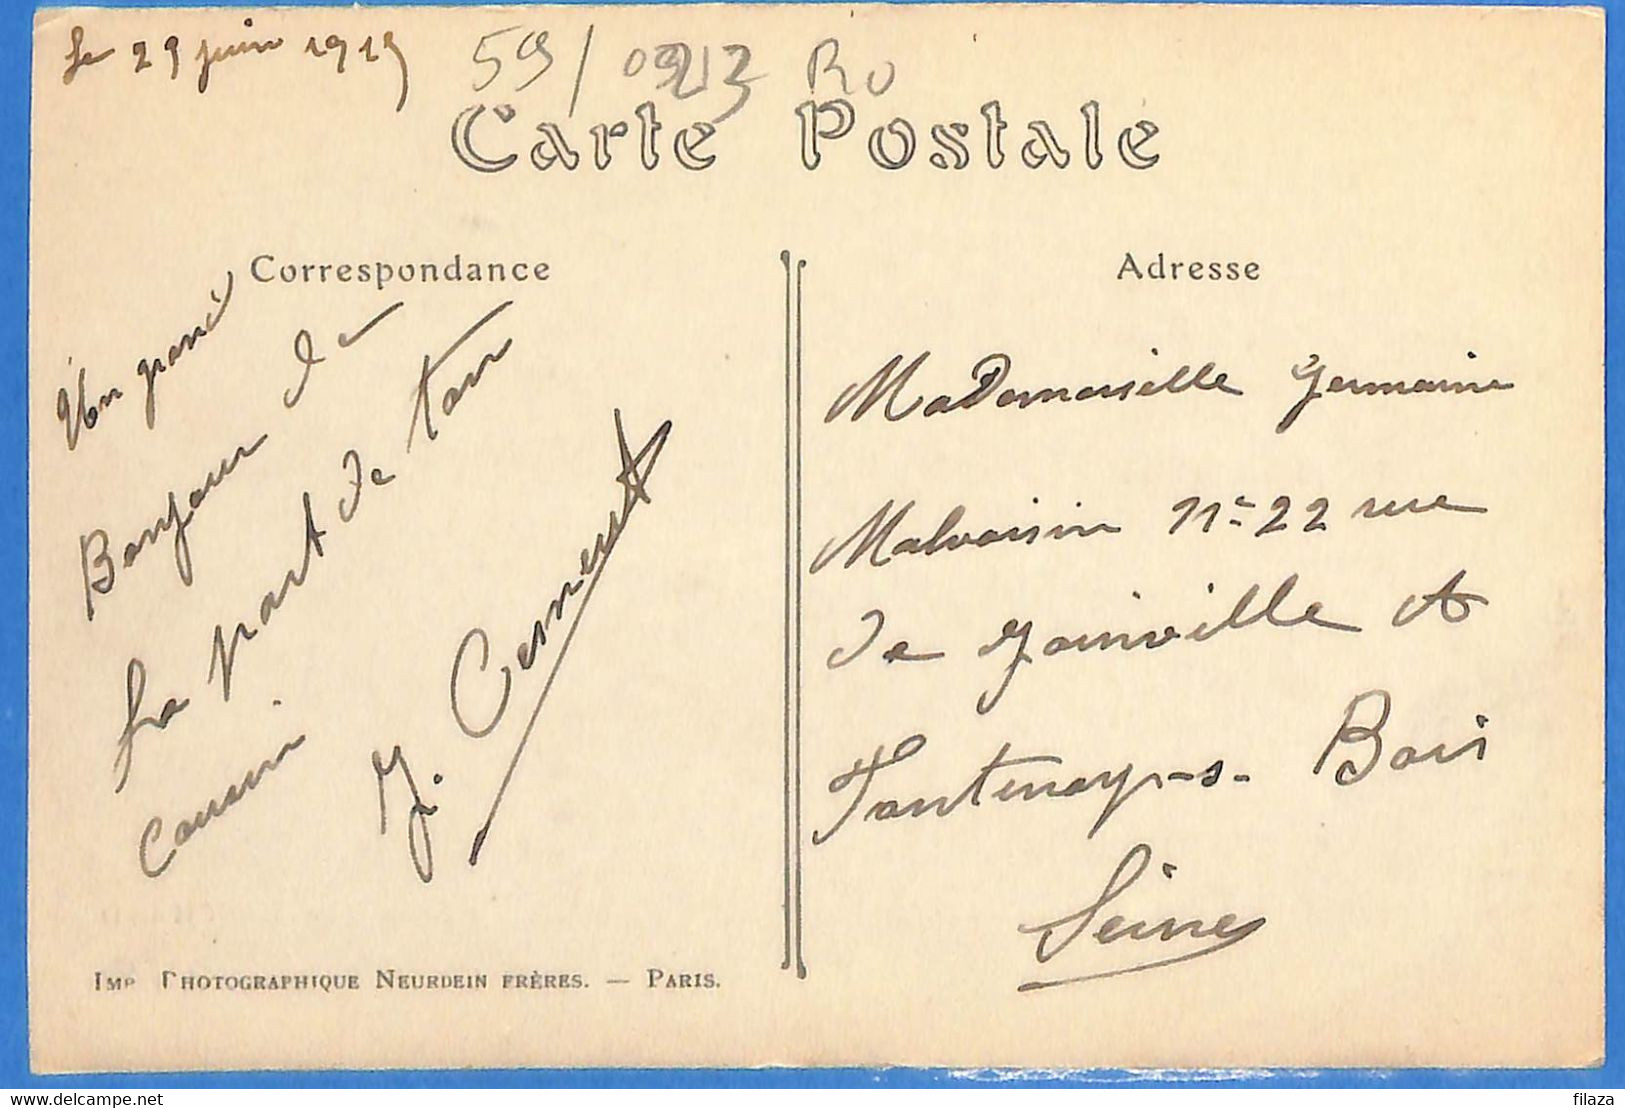 Le 29 juin 1919
59/
Carte Postale
Correspondance
Un grand
Bonjour de
la part de ton
cousin
J.
Imp Photographique Neurdein frères. — Paris.
Adresse
MaDemoiselle Germaine
Malvoisin n= 22 rue
de Joinville A
Fontenay-s- Bois
Seine
delcampe.net
filaza